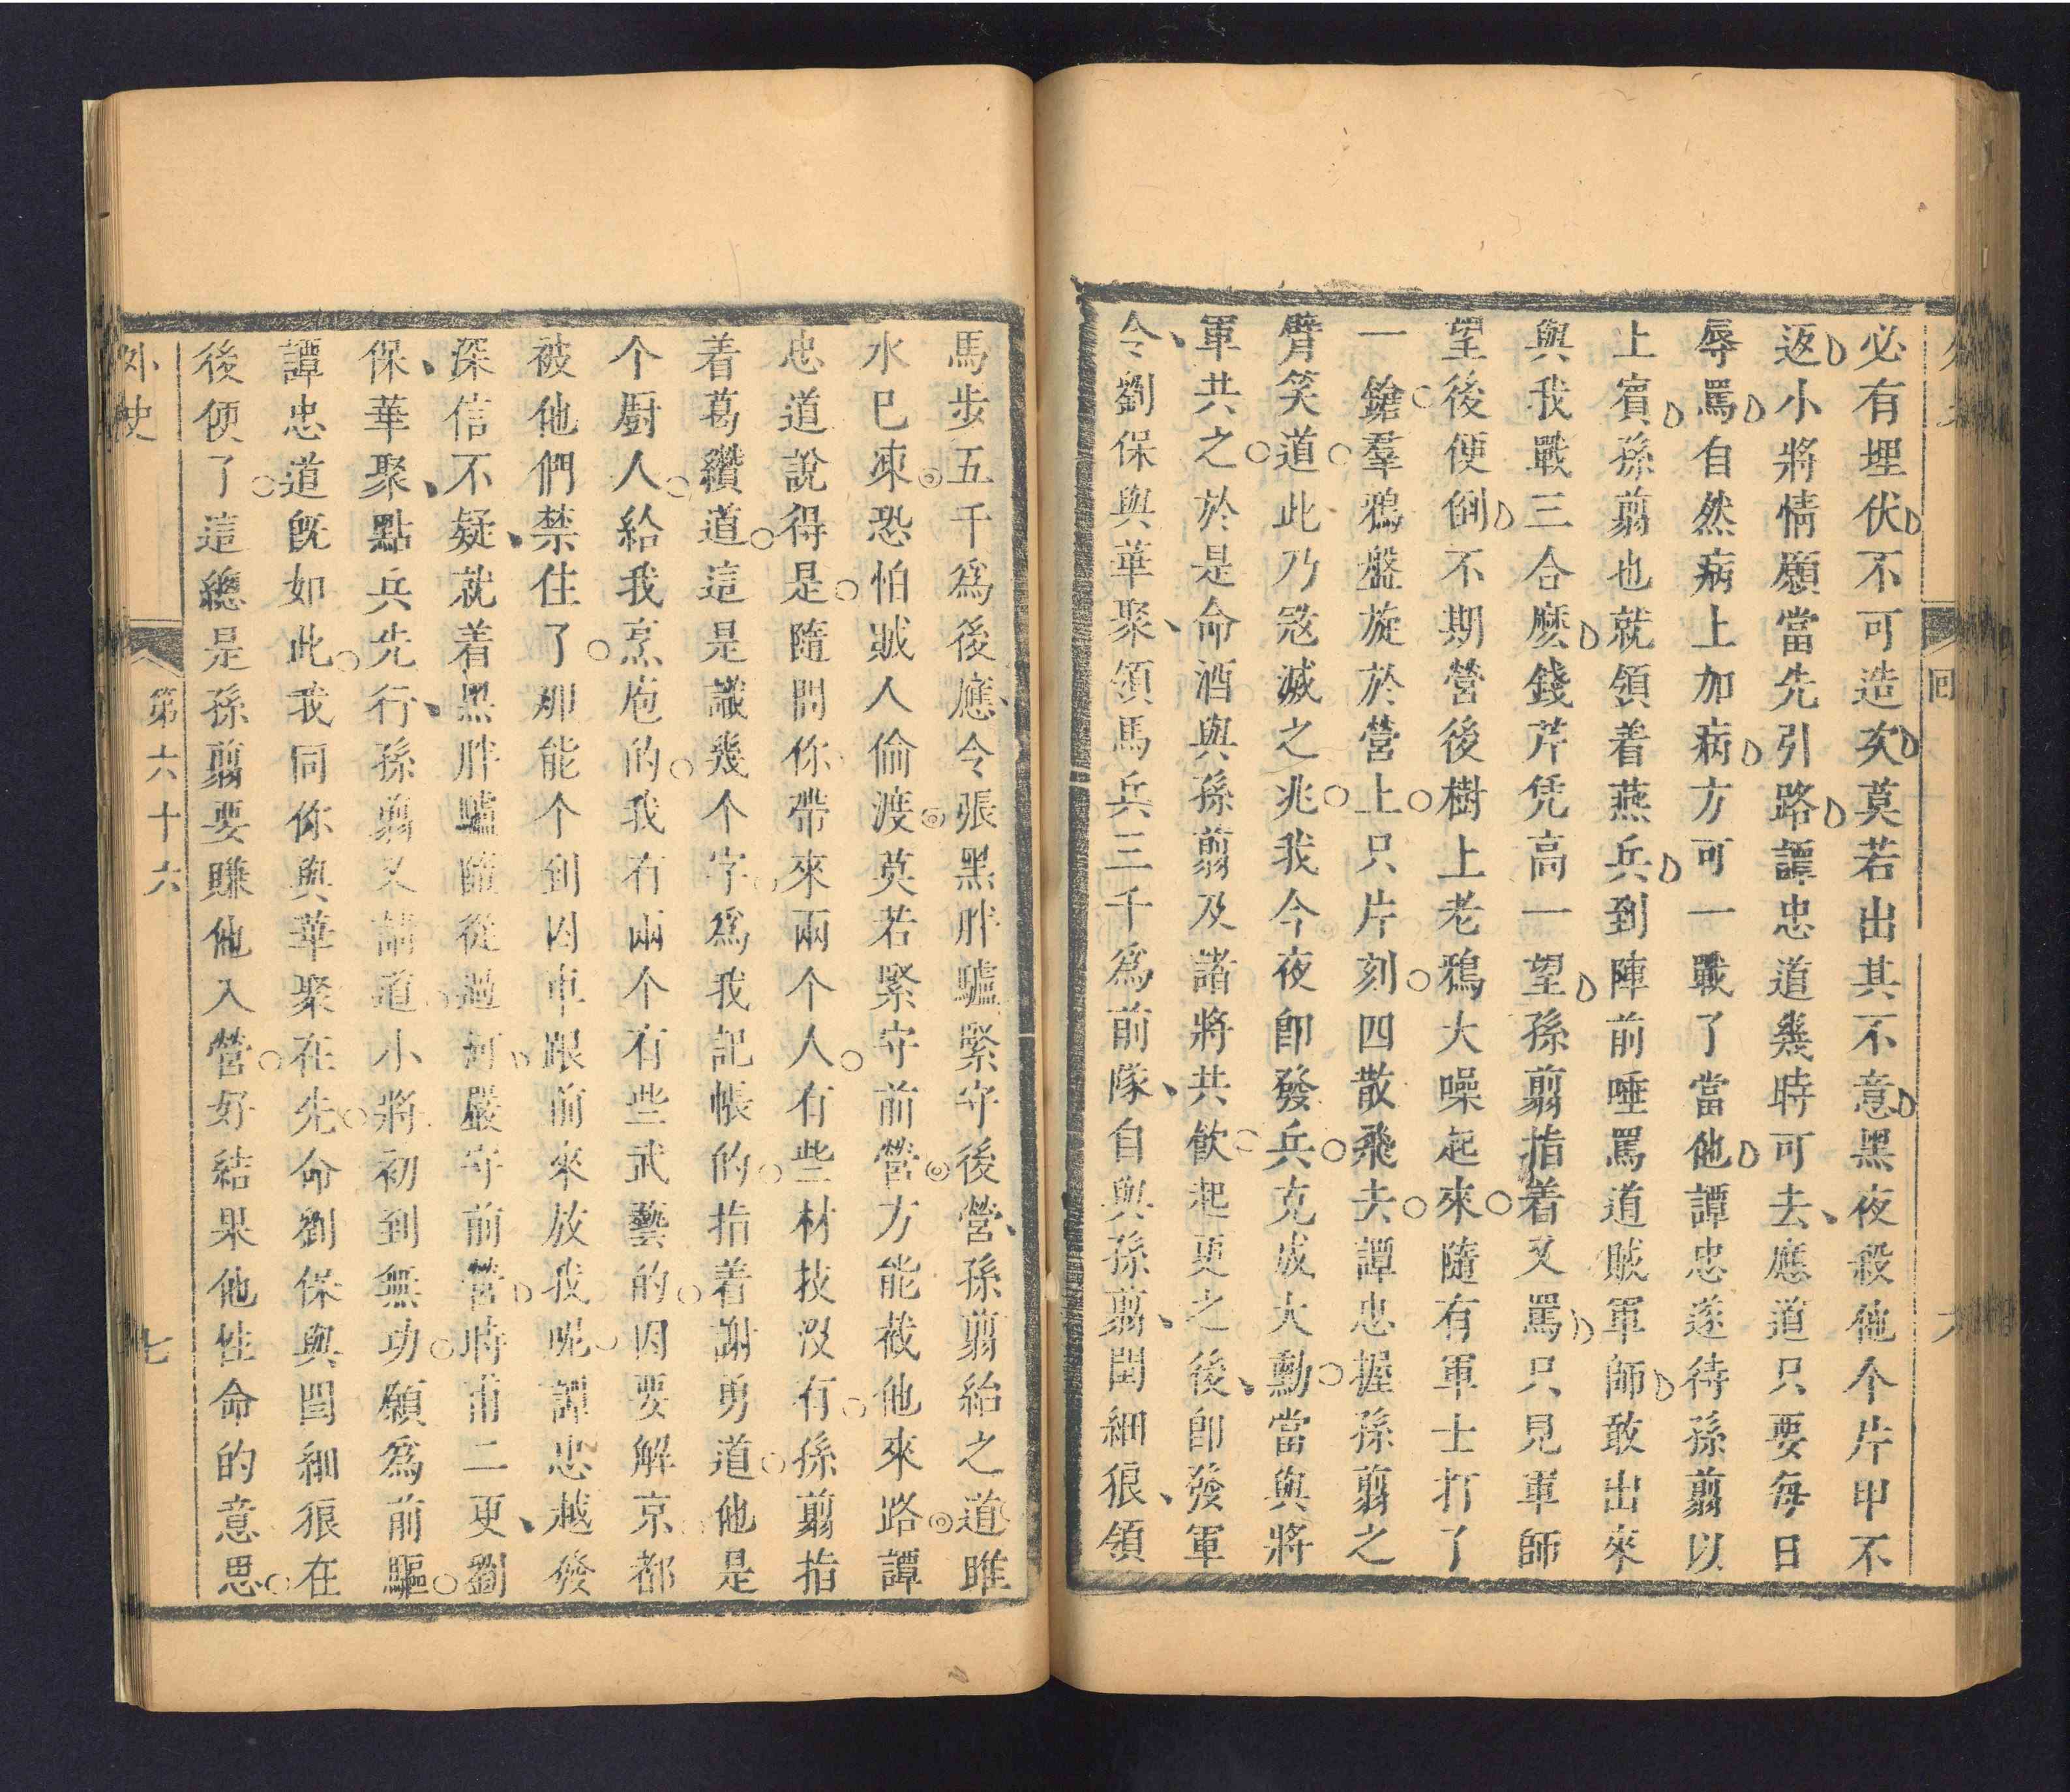 必有埋伏不可造次莫若出其不意黑夜殺他个片甲不
返小將情願當先引路譚忠道幾時可去應道只要每日
辱罵自然病上加病方可一戰了當他譚忠遂待孫翦以
上賓孫翦也就領着燕兵到陣前唾罵道賊軍師敢出來
與我戰三合麽錢芹凭高一望孫翦指着又罵只見軍師
望後便倒不期營後樹上老鴉大噪起來隨有軍士打了
一鎗羣鴉盤旋於營上只片刻四散飛去譚忠握孫翦之
臂笑道此乃寇滅之兆我今夜卽發兵克成大勳當與將
軍共之於是命酒與孫翦及諸將共飲起更之後卽發軍
令劉保與華聚領馬兵三千爲前隊自與孫翦閏細狼領
馬步五千爲後應令張黑胖驢緊守後營孫翦紿之道雎
水已凍恐怕賊人偷渡莫若緊守前營方能截他來路譚
忠道說得是隨問你帶來兩个人有些材技沒有孫翦指
着葛纘道這是識幾个字爲我記帳的指着謝勇道他是
个厨人給我烹庖的我有兩个有些武藝的因要解京都
被他們禁住了那能个到囚車跟前來放我呢譚忠越發
深信不疑就着黑胖驢隨從過河嚴守前營時甫二更劉
保華聚點兵先行孫翦又請道小將初到無功願爲前驅
譚忠道旣如此我同你與華聚在先命劉保與閏細狼在
後便了這總是孫翦要賺他入營好結果他性命的意思
外史
第六十六
七
回